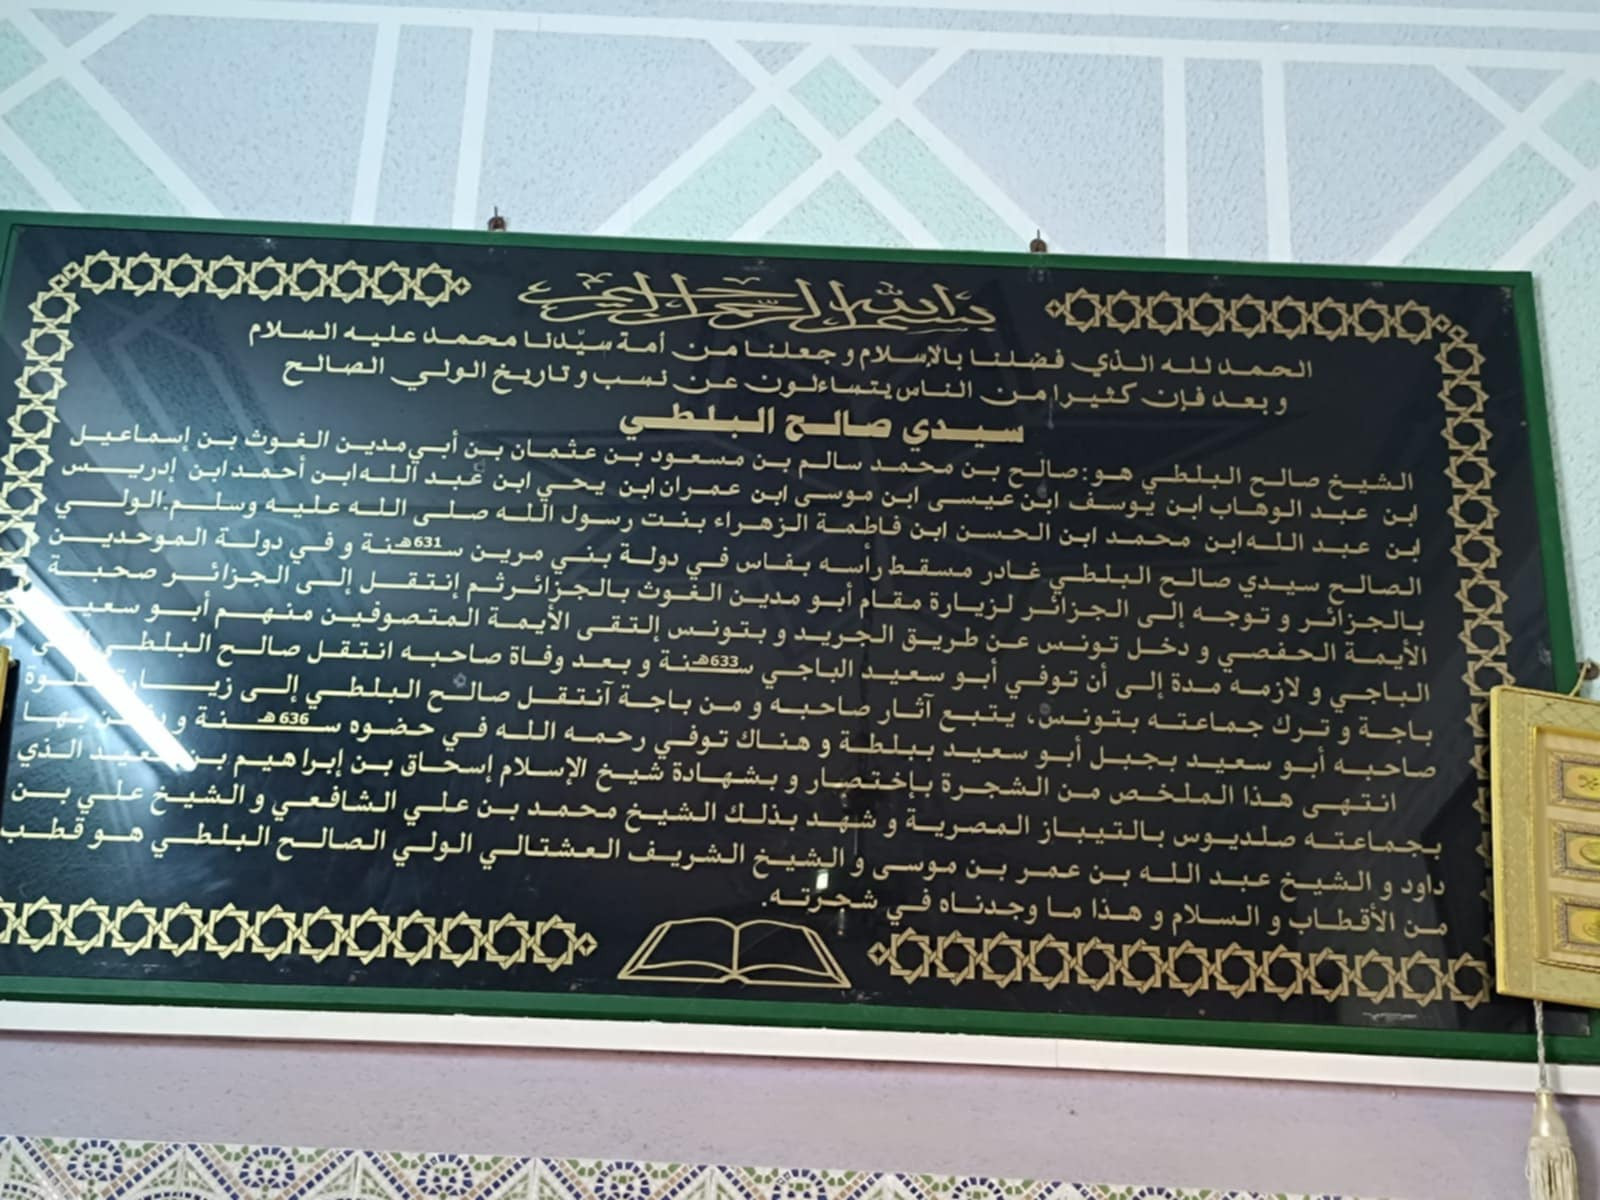 بسم الله الرحمن الرحيم
الحمد لله الذي فضلنا بالإسلام و جعلنا من أمة سيّدنا محمد عليه السلام
و بعد فإن كثيرا من الناس يتساءلون عن نسب و تاريخ الولي الصالح
سيدي صالح البلطي
الشيخ صالح البلطي هو: صالح بن محمد سالم بن مسعود بن عثمان بن أبي مدين الغوث بن إسماعيل
ابن عبد الوهاب ابن يوسف ابن عيسى ابن موسى ابن عمران ابن يحي ابن عبد الله ابن أحمد ابن إدريس
ابن عبد الله ابن محمد ابن الحسن ابن فاطمة الزهراء بنت رسول الله صلى الله عليه وسلم. الولي
الصالح سيدي صالح البلطي غادر مسقط رأسه بفاس في دولة بني مرين سنة 631هـ و في دولة الموحدين
بالجزائر و توجه إلى الجزائر لزيارة مقام أبو مدين الغوث بالجزائر ثم إنتقل إلى الجزائر صحبة
الأيمة الحفصي و دخل تونس عن طريق الجريد و بتونس إلتقى الأيمة المتصوفين منهم أبو سعيد
الباجي و لازمه مدة إلى أن توفي أبو سعيد الباجي سنة 633هـ و بعد وفاة صاحبه انتقل صالح البلطي إلى
باجة و ترك جماعته بتونس، يتبع آثار صاحبه و من باجة آنتقل صالح البلطي إلى زيارة خلوة
صاحبه أبو سعيد بجبل أبو سعيد ببلطة و هناك توفي رحمه الله في حضوه سنة 636هـ و دفن بها
انتهى هذا الملخص من الشجرة بإختصار و بشهادة شيخ الإسلام إسحاق بن إبراهيم بن سعيد الذي
بجماعته صلديوس بالتيباز المصرية و شهد بذلك الشيخ محمد بن علي الشافعي و الشيخ علي بن
داود و الشيخ عبد الله بن عمر بن موسى و الشيخ الشريف العشتالي الولي الصالح البلطي هو قطب
من الأقطاب و السلام و هذا ما وجدناه في شجرته.